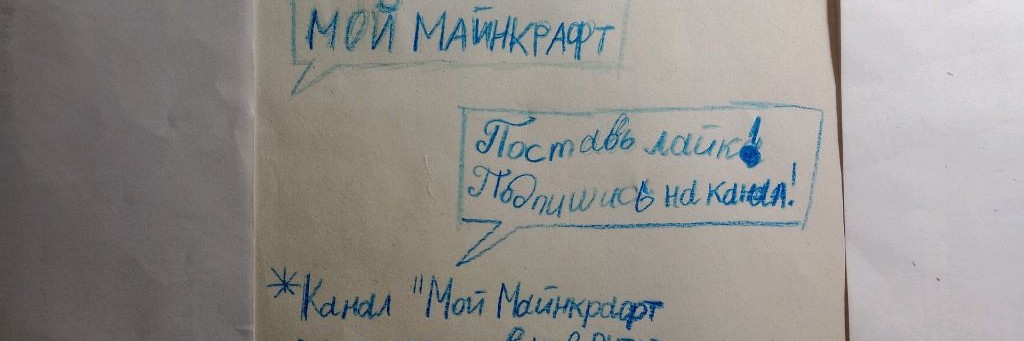 МОЙ МАЙНКРАФТ
Поставь лайк!
Подпишись на канал!
*Канал "Мой Майнкрафт